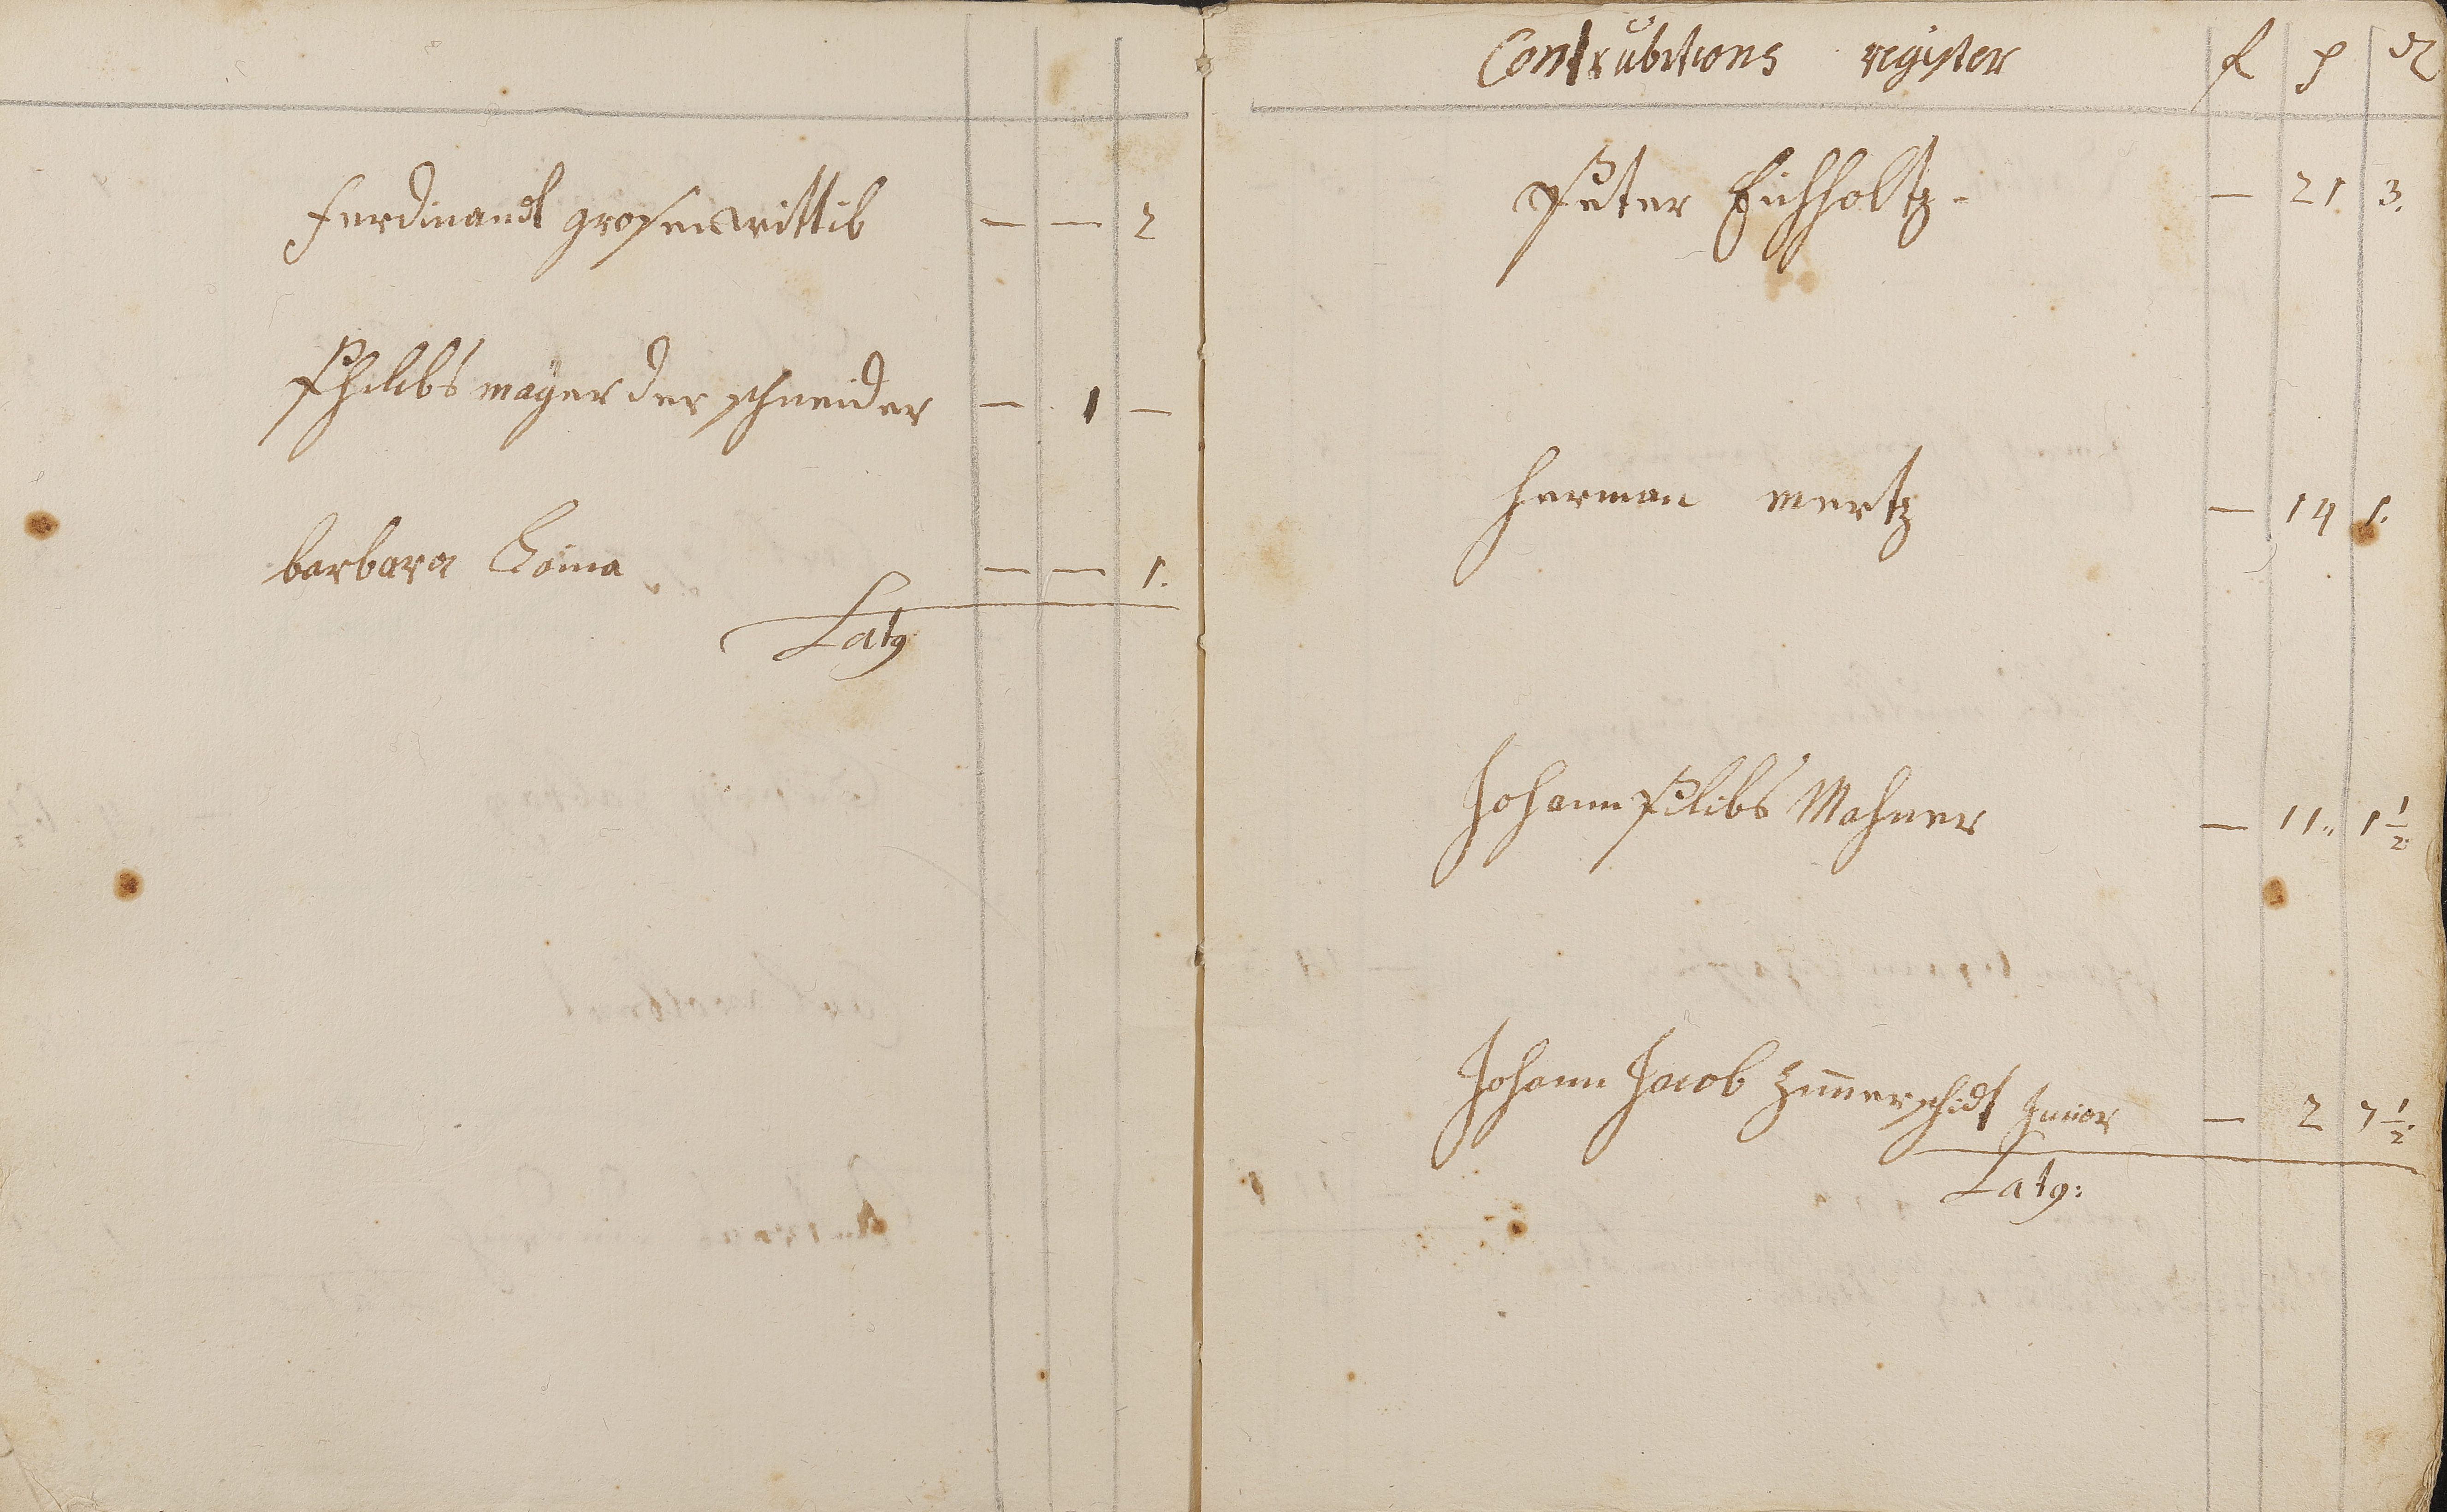 Ferdinandt grosen wittib — — 2
Philibs mayer der schneider — 1 —
barbara — — 1.
Lat9
Contrubitions register f ß ₰
Peter Eichholtz - — 21 3.
Herman Mertz — 14 1.
Johann Pilibs Mohner — 11" 1 1/2.
Johann Jacob Zim̄erschidt Junior — 2 7 1/2.
Lat9: